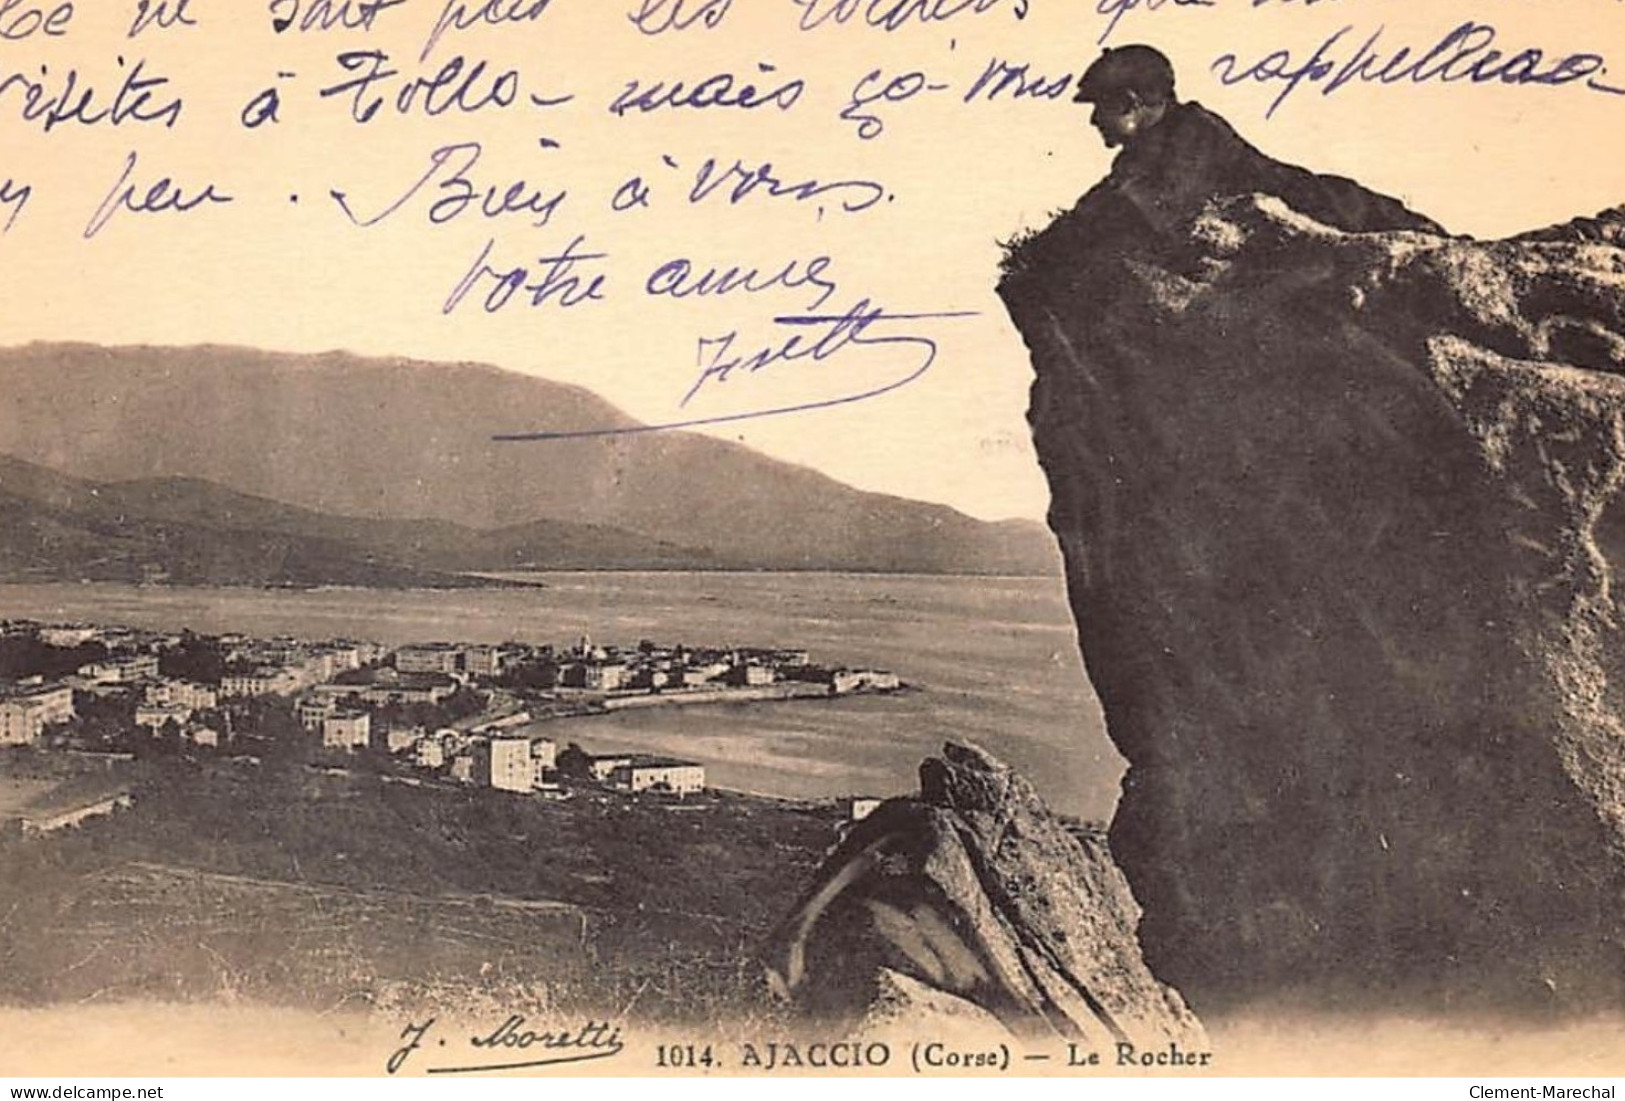 ne sont pas les rochers que
visites à Tollo - mais ça vous rappellera
peu. - Bien à vous.
Votre amie
J. Moretti
1014. AJACCIO (Corse) — Le Rocher
www.delcampe.net
Clement-Marechal